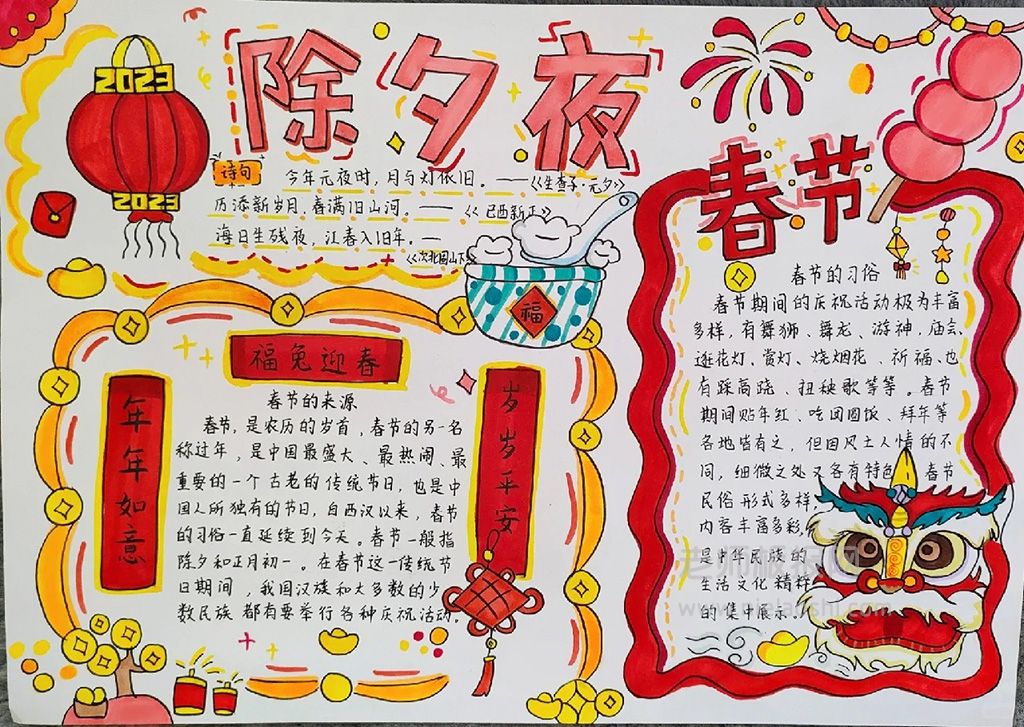 2023
2023
除夕夜
诗句
今年元夜时,月与灯依旧。——《生查子·元夕》
历添新岁月,春满旧山河。——《己酉新正》
海日生残夜,江春入旧年。—
《次北固山下》
福
福兔迎春
年年如意
岁岁平安
春节的来源
春节,是农历的岁首,春节的另一名
称过年,是中国最盛大、最热闹、最
重要的一个古老的传统节日,也是中
国人所独有的节日,自西汉以来,春节
的习俗一直延续到今天。春节一般指
除夕和正月初一。在春节这一传统节
日期间,我国汉族和大多数的少
数民族 都有要举行各种庆祝活动。
春节
春节的习俗
春节期间的庆祝活动极为丰富
多样,有舞狮、舞龙、游神,庙会、
逛花灯、赏灯、烧烟花、祈福、也
有踩高跷、扭秧歌等等。春节
期间贴年红、吃团圆饭、拜年等
各地皆有之,但因风土人情的不
同,细微之处又各有特色 春节
民俗形式多样,
内容丰富多彩,
是中华民族的
生活文化精粹
的集中展示。